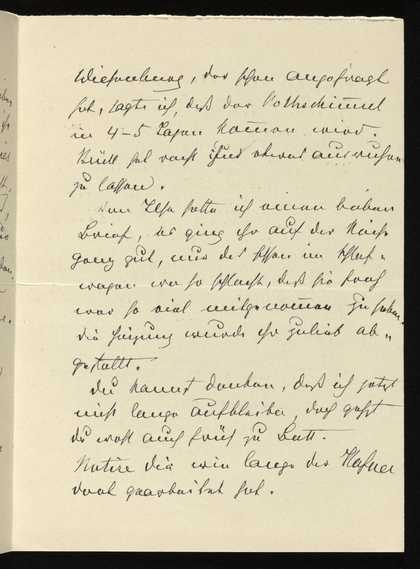 Wiesenburg, der schon angefragt
hat, sagte ich, daß der Volksschimmel
in 4–5 Tagen kommen wird.
Brüll hat recht sich etwas ausruhen
zu lassen.
Von Ilse hatte ich einen lieben
Brief, es ging ihr auf der Reise
ganz gut, nur das Essen im Schlaf-
wagen war so schlecht, daß sie froh
war so viel mitgenommen zu haben.
die Heizung wurde ihr zulieb ab-
gestellt.
Du kannst denken, daß ich jetzt
nicht lange aufbleibe, doch gehst
du wohl auch früh zu Bett.
Notire dir wie lange der Hafner
dort gearbeitet hat.